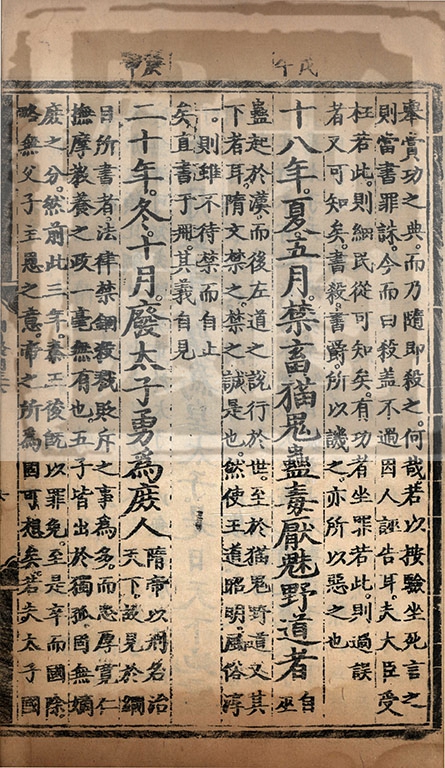 戊午
舉賞功之典。而乃隨即殺之。何哉。若以按驗坐死言之。
則當書罪誅。今而曰殺。盖不過因人誣告耳。夫大臣受
枉若此。則細民從可知矣。有功者坐罪若此。則過誤
者又可知矣。書殺。書爵。所以譏之。亦所以惡之也
十八年。夏。五月。禁畜猫鬼蠱毒厭魅野道者
自巫
蠱起於漢。而後左道之說行於世。至於猫鬼野道。又其
下者耳。隋文禁之。禁之誠是也。然使王道昭明。風俗淳
一。則雖不待禁而自止
矣。直書于冊。其義自見
庚申
二十年。冬。十月。廢太子勇為庶人
隋帝以刑名治
天下。故見於綱
目所書者。法律禁錮殺戮貶斥之事為多。而忠厚寬仁
撫摩教養之政。一毫無有也。五子皆出於獨孤。固無嫡
庶之分。然前此三年。秦王俊既以罪免。至是卒而國除。
略無父子主恩之意。帝之所為。固可想矣。若夫太子國